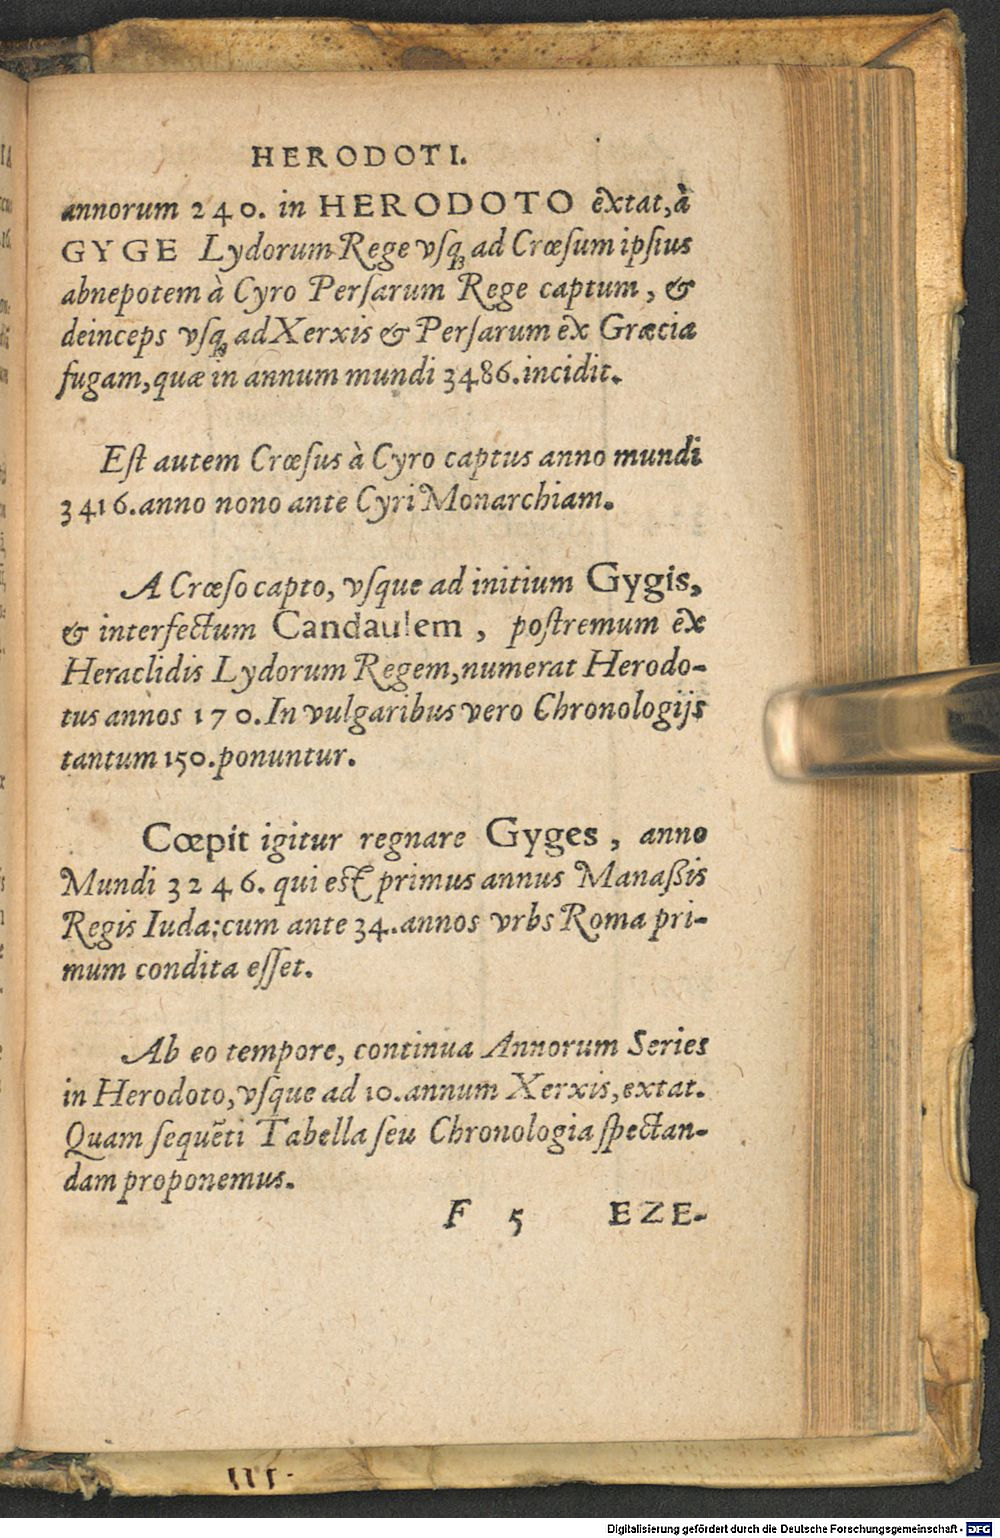 HERODOTI.
annorum 240. in HERODOTO extat, à
GYGE Lydorum Rege vsq; ad Crœsum ipsius
abnepotem à Cyro Persarum Rege captum, &
deinceps vsq; ad Xerxis & Persarum ex Græcia
fugam, quæ in annum mundi 3486. incidit.
Est autem Crœsus à Cyro captus anno mundi
3416. anno nono ante Cyri Monarchiam.
A Crœso capto, vsque ad initium Gygis,
& interfectum Candaulem, postremum ex
Heraclidis Lydorum Regem, numerat Herodo-
tus annos 170. In vulgaribus vero Chronologijs
tantum 150. ponuntur.
Cœpit igitur regnare Gyges, anno
Mundi 3246. qui est primus annus Manaßis
Regis Iuda: cum ante 34. annos vrbs Roma pri-
mum condita esset.
Ab eo tempore, continua Annorum Series
in Herodoto, vsque ad 10. annum Xerxis, extat.
Quam sequẽti Tabella seu Chronologia spectan-
dam proponemus.
F 5 EZE-
Digitalisierung gefördert durch die Deutsche Forschungsgemeinschaft - DFG